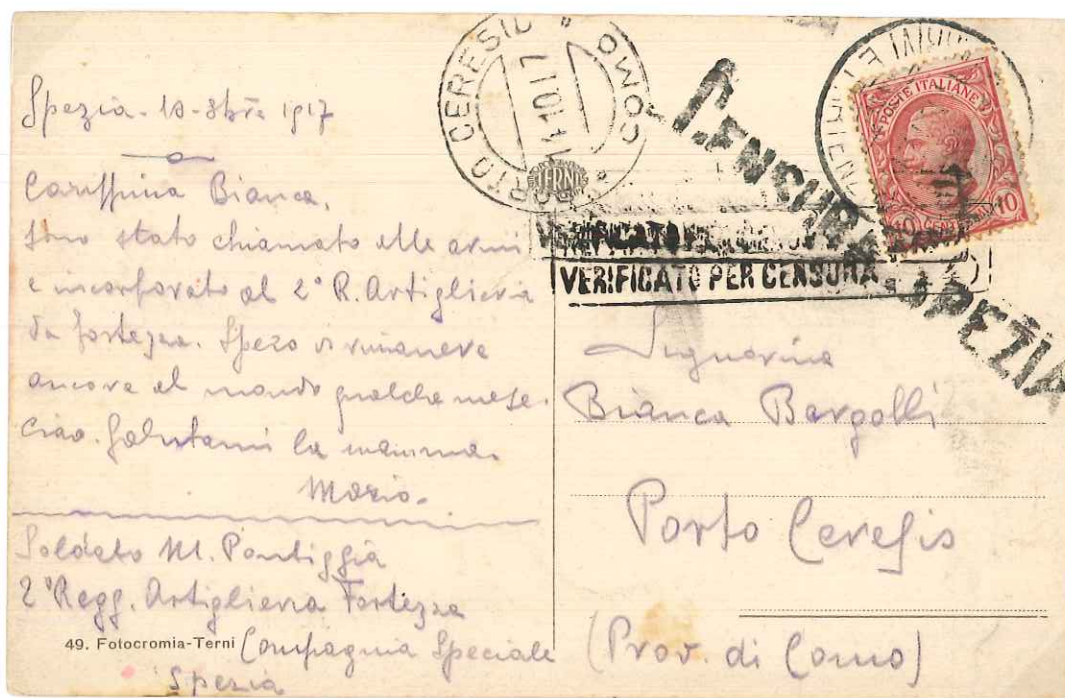 Spezia - 10 - 8bre 1917
Carissima Bianca,
sono stato chiamato alle armi
e incorporato al 2° R. Artiglieria
da fortezza. Spero di rimanere
ancora al mondo qualche mese.
Ciao. Salutami la mamma.
Mario.
Soldato M. Pontiggia
2° Regg. Artiglieria Fortezza
49. Fotocromia-Terni
Compagnia Speciale
Spezia
PORTO CERESIO
COMO
14 10 17
TERNI
CENSURA
SPEZIA
VERIFICATO PER CENSURA
VERIFICATO PER CENSURA
POSTE ITALIANE
10
Signorina
Bianca Bargolli
Porto Ceresio
(Prov. di Como)